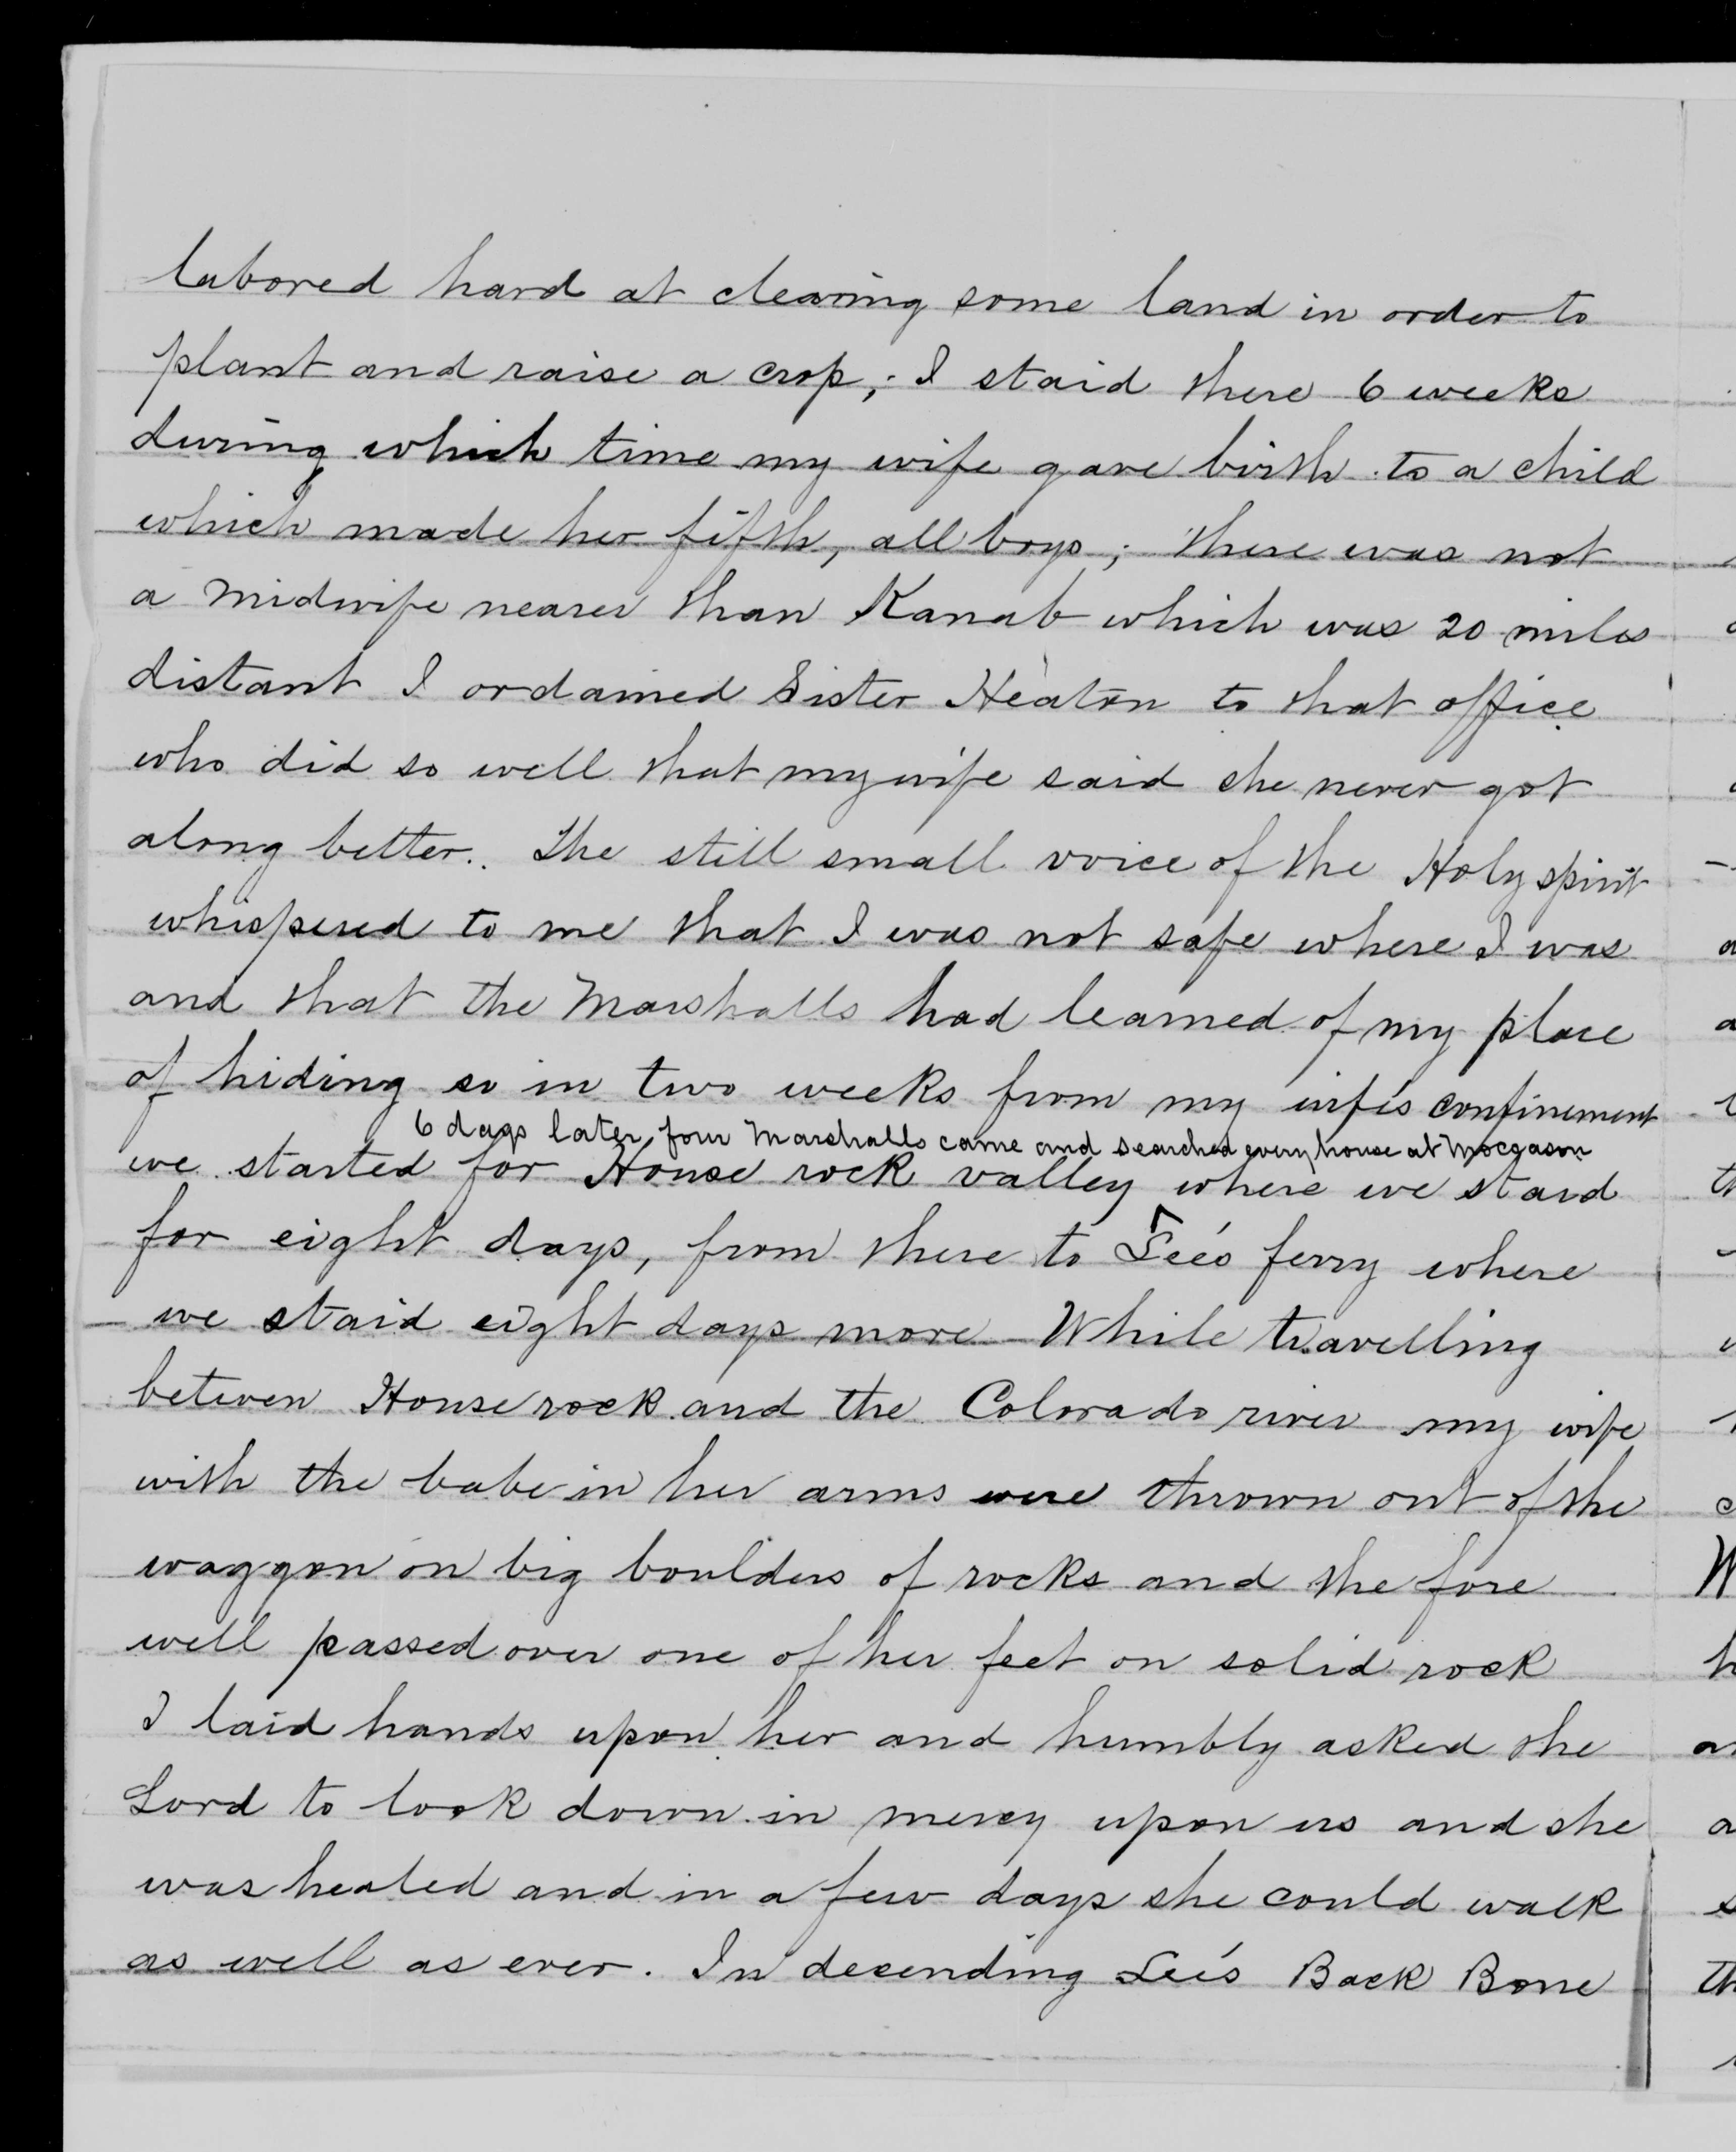 labored hard at clearing some land in order to
plant and raise a crop; I staid there 6 weeks
during which time my wife gave birth to a child
which made her fifth, all boys; there was not
a midwife nearer than Kanab which was 20 miles
distant I ordained Sister Heaton to that office
who did so well that my wife said she never got
along better. The still small voice of the Holy spirit
whispered to me that I was not safe where I was
and that the Marshalls had learned of my place
of hiding so in two weeks from my wife's confinement
6 days later four Marshalls came and searched every house at Mocgason
we started for House rock valley where we staid
for eight days, from there to Lee's ferry where
we staid eight days more While travelling
betwen House rock and the Colorado river my wife
with the babe in her arms were thrown out of the
waggon on big boulders of rocks and the fore
well passed over one of her feet on solid rock
I laid hands upon her and humbly asked the
Lord to look down in mercy upon us and she
was healed and in a few days she could walk
as well as ever. In decending Lee's Back Bone